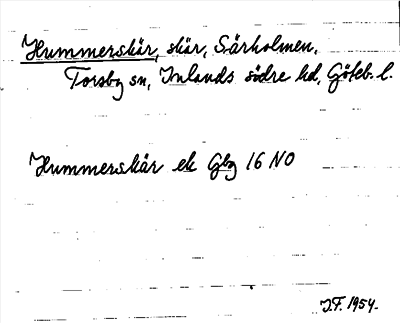 Hummerskär, skär, Särholmen,
Torsby sn, Inlands södre hd, Göteb. l.
Hummerskär ek Gbg 16 NO
I.F. 1954.